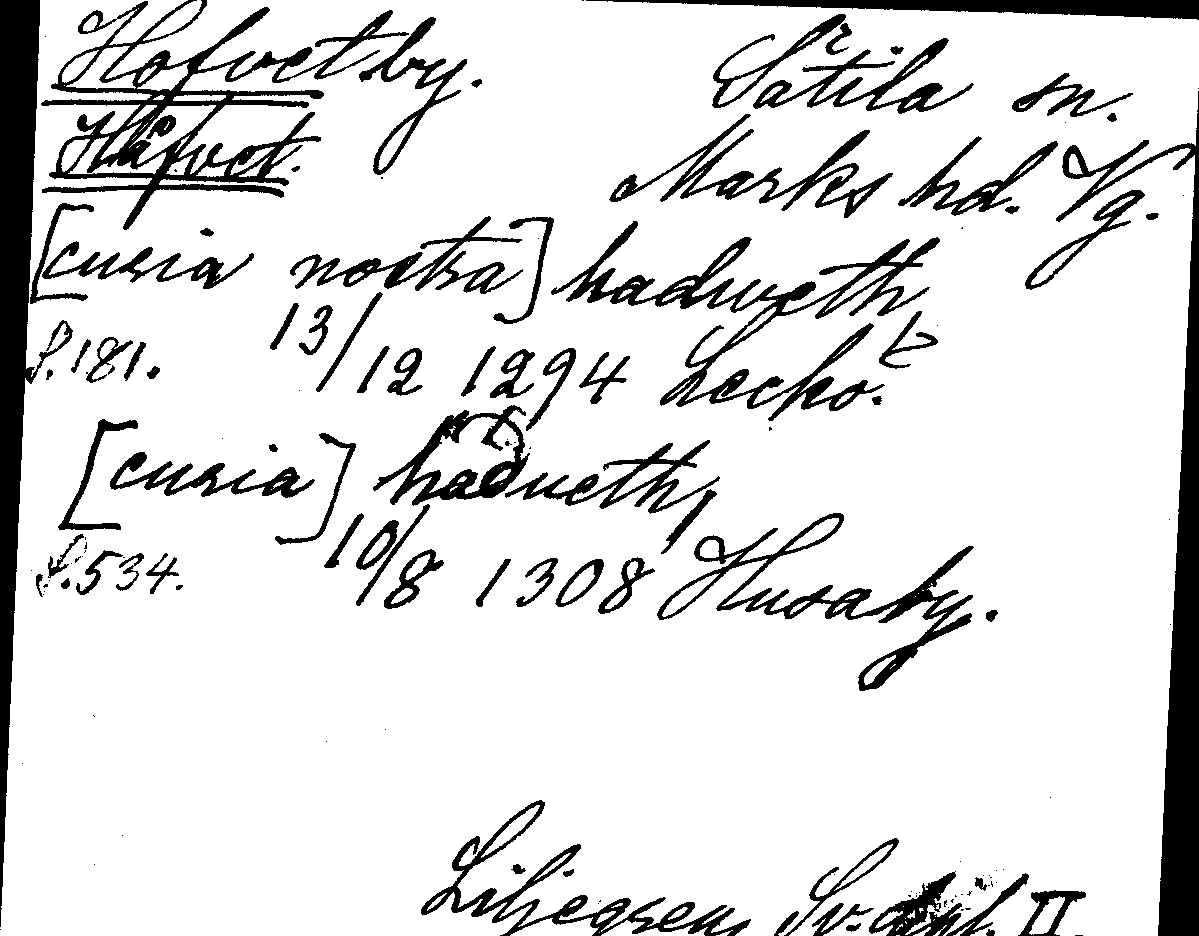 Hofvet by. Sätila sn.
Håfvet. Marks hd. Vg.
[curia nostra] hadweth
S. 181. 13/12 1294 Lecko.
[curia] hadueth,
S. 534. 10/8 1308 Husaby.
Liljegren, Sv. dipl. II.